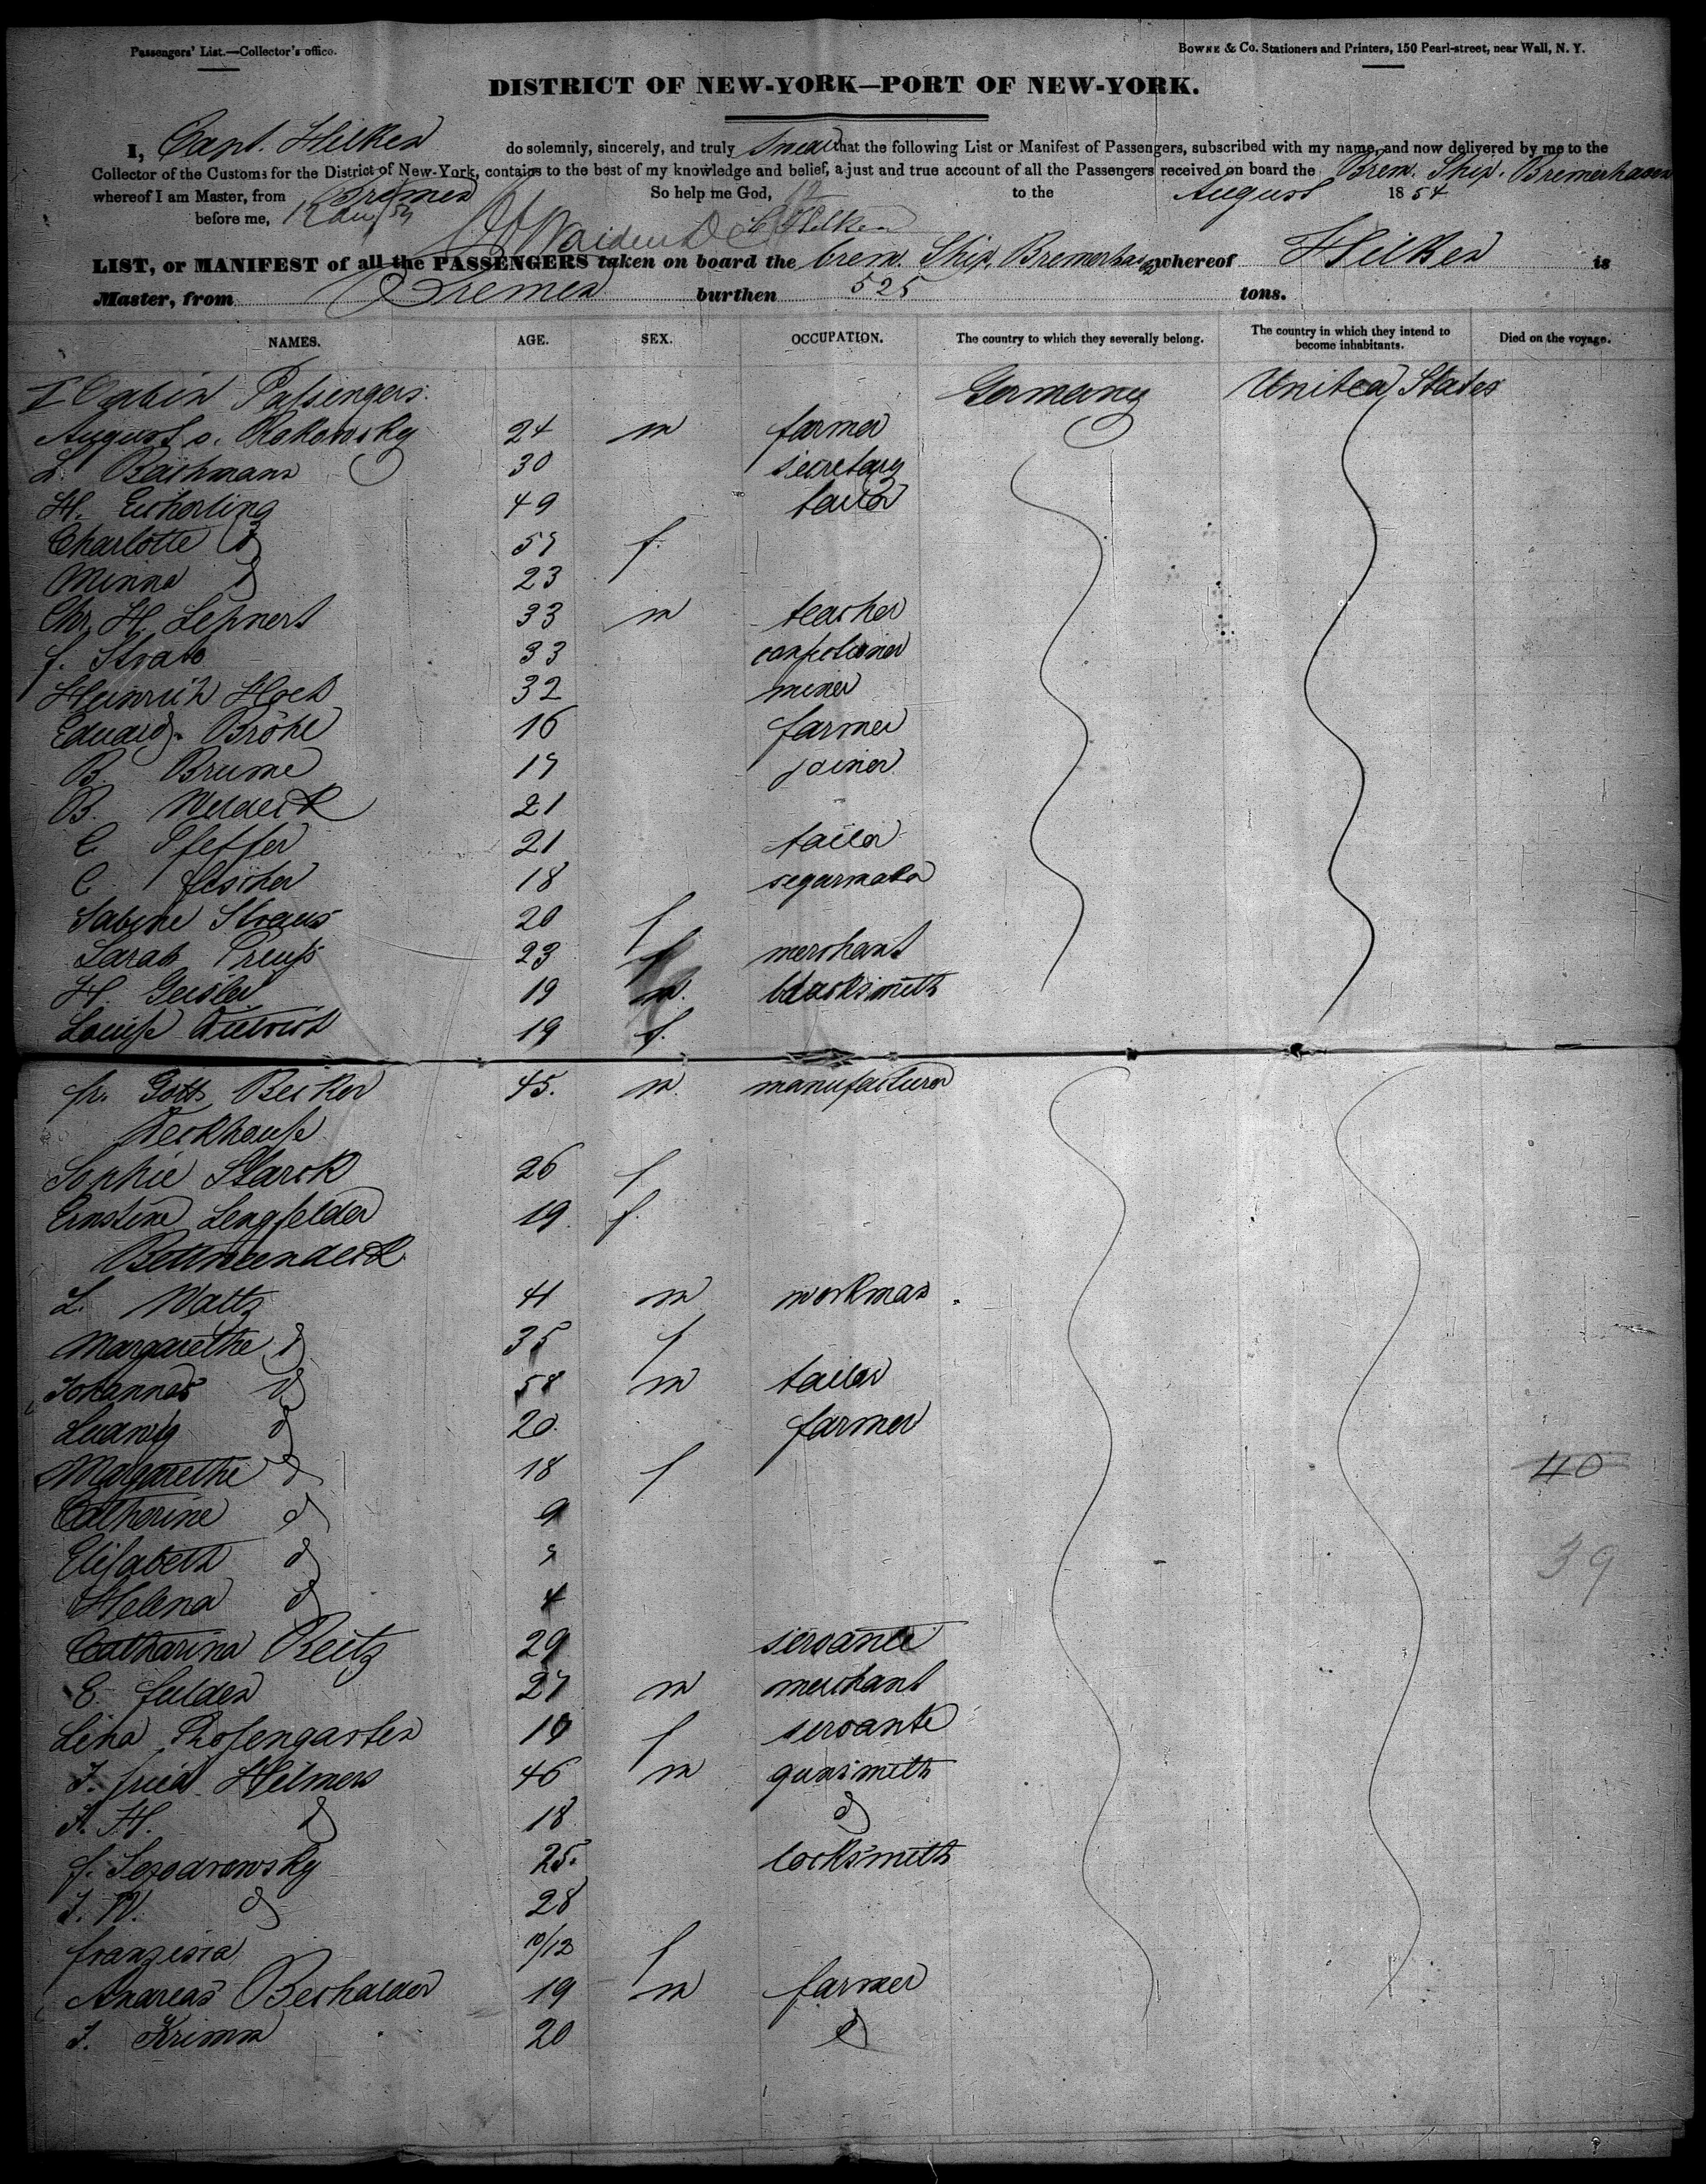 Passengers' List.—Collector's office.
Bowne & Co. Stationers and Printers, 150 Pearl-street, near Wall, N. Y.
DISTRICT OF NEW-YORK—PORT OF NEW-YORK.
I, Capt. Hilken do solemnly, sincerely, and truly swear that the following List or Manifest of Passengers, subscribed with my name, and now delivered by me to the
Collector of the Customs for the District of New-York, contains to the best of my knowledge and belief, a just and true account of all the Passengers received on board the Brem. Ship. Bremerhaven
whereof I am Master, from Bremen So help me God, to the August 1854
before me, 12 Aug 54 Hilken
LIST, or MANIFEST of all the PASSENGERS taken on board the brem. Ship. Bremerhaven whereof Hilken is
Master, from Bremen burthen 525 tons.
NAMES. AGE. SEX. OCCUPATION. The country to which they severally belong. The country in which they intend to become inhabitants. Died on the voyage.
I Cabin Passengers: Germany United States
August v. Rakowsky 24 m farmer
L. Bachmann 30 secretary
H. Eicherling 49 tailor
Charlotte d 57 f.
Minna d 23
Chr. H. Lehnert 33 m teacher
f. Strate 33 confectioner
Heinrich Hoch 32 miner
Eduard Bröhl 16 farmer
B. Brume 17 joiner
B. Werdeck 21
C Pfeffer 21 tailor
C fischer 18 segarmaker
Sabine Straus 20 f
Sarah Preuss 23 f merchant
H. Geisler 19 m. blacksmith
Louise Dietrich 19 f.
fr. Gotts Becker 45. m. manufacturer
Sophie Starck 26 f
Ernstine Lengfelder 19. f.
L. Waltz 41 m workman
Margarethe d 35 f
Johannes d 58 m tailor
Ludwig d 20. farmer
Margarethe d 18 f 40
Catherine d 9
Elisabeth d 7 39
Helena d 4
Catharina Reitz 29 servante
E. fulder 27 m merchant
Lina Rosengarten 19 f servante
J. fried. Helmers 46 m gunsmith
A. H. d 18 d
f. 25. locksmith
J. W. d 28
franzisca 10/12 f
Andreas Berhalder 19 m farmer
J. Krimm 20 d